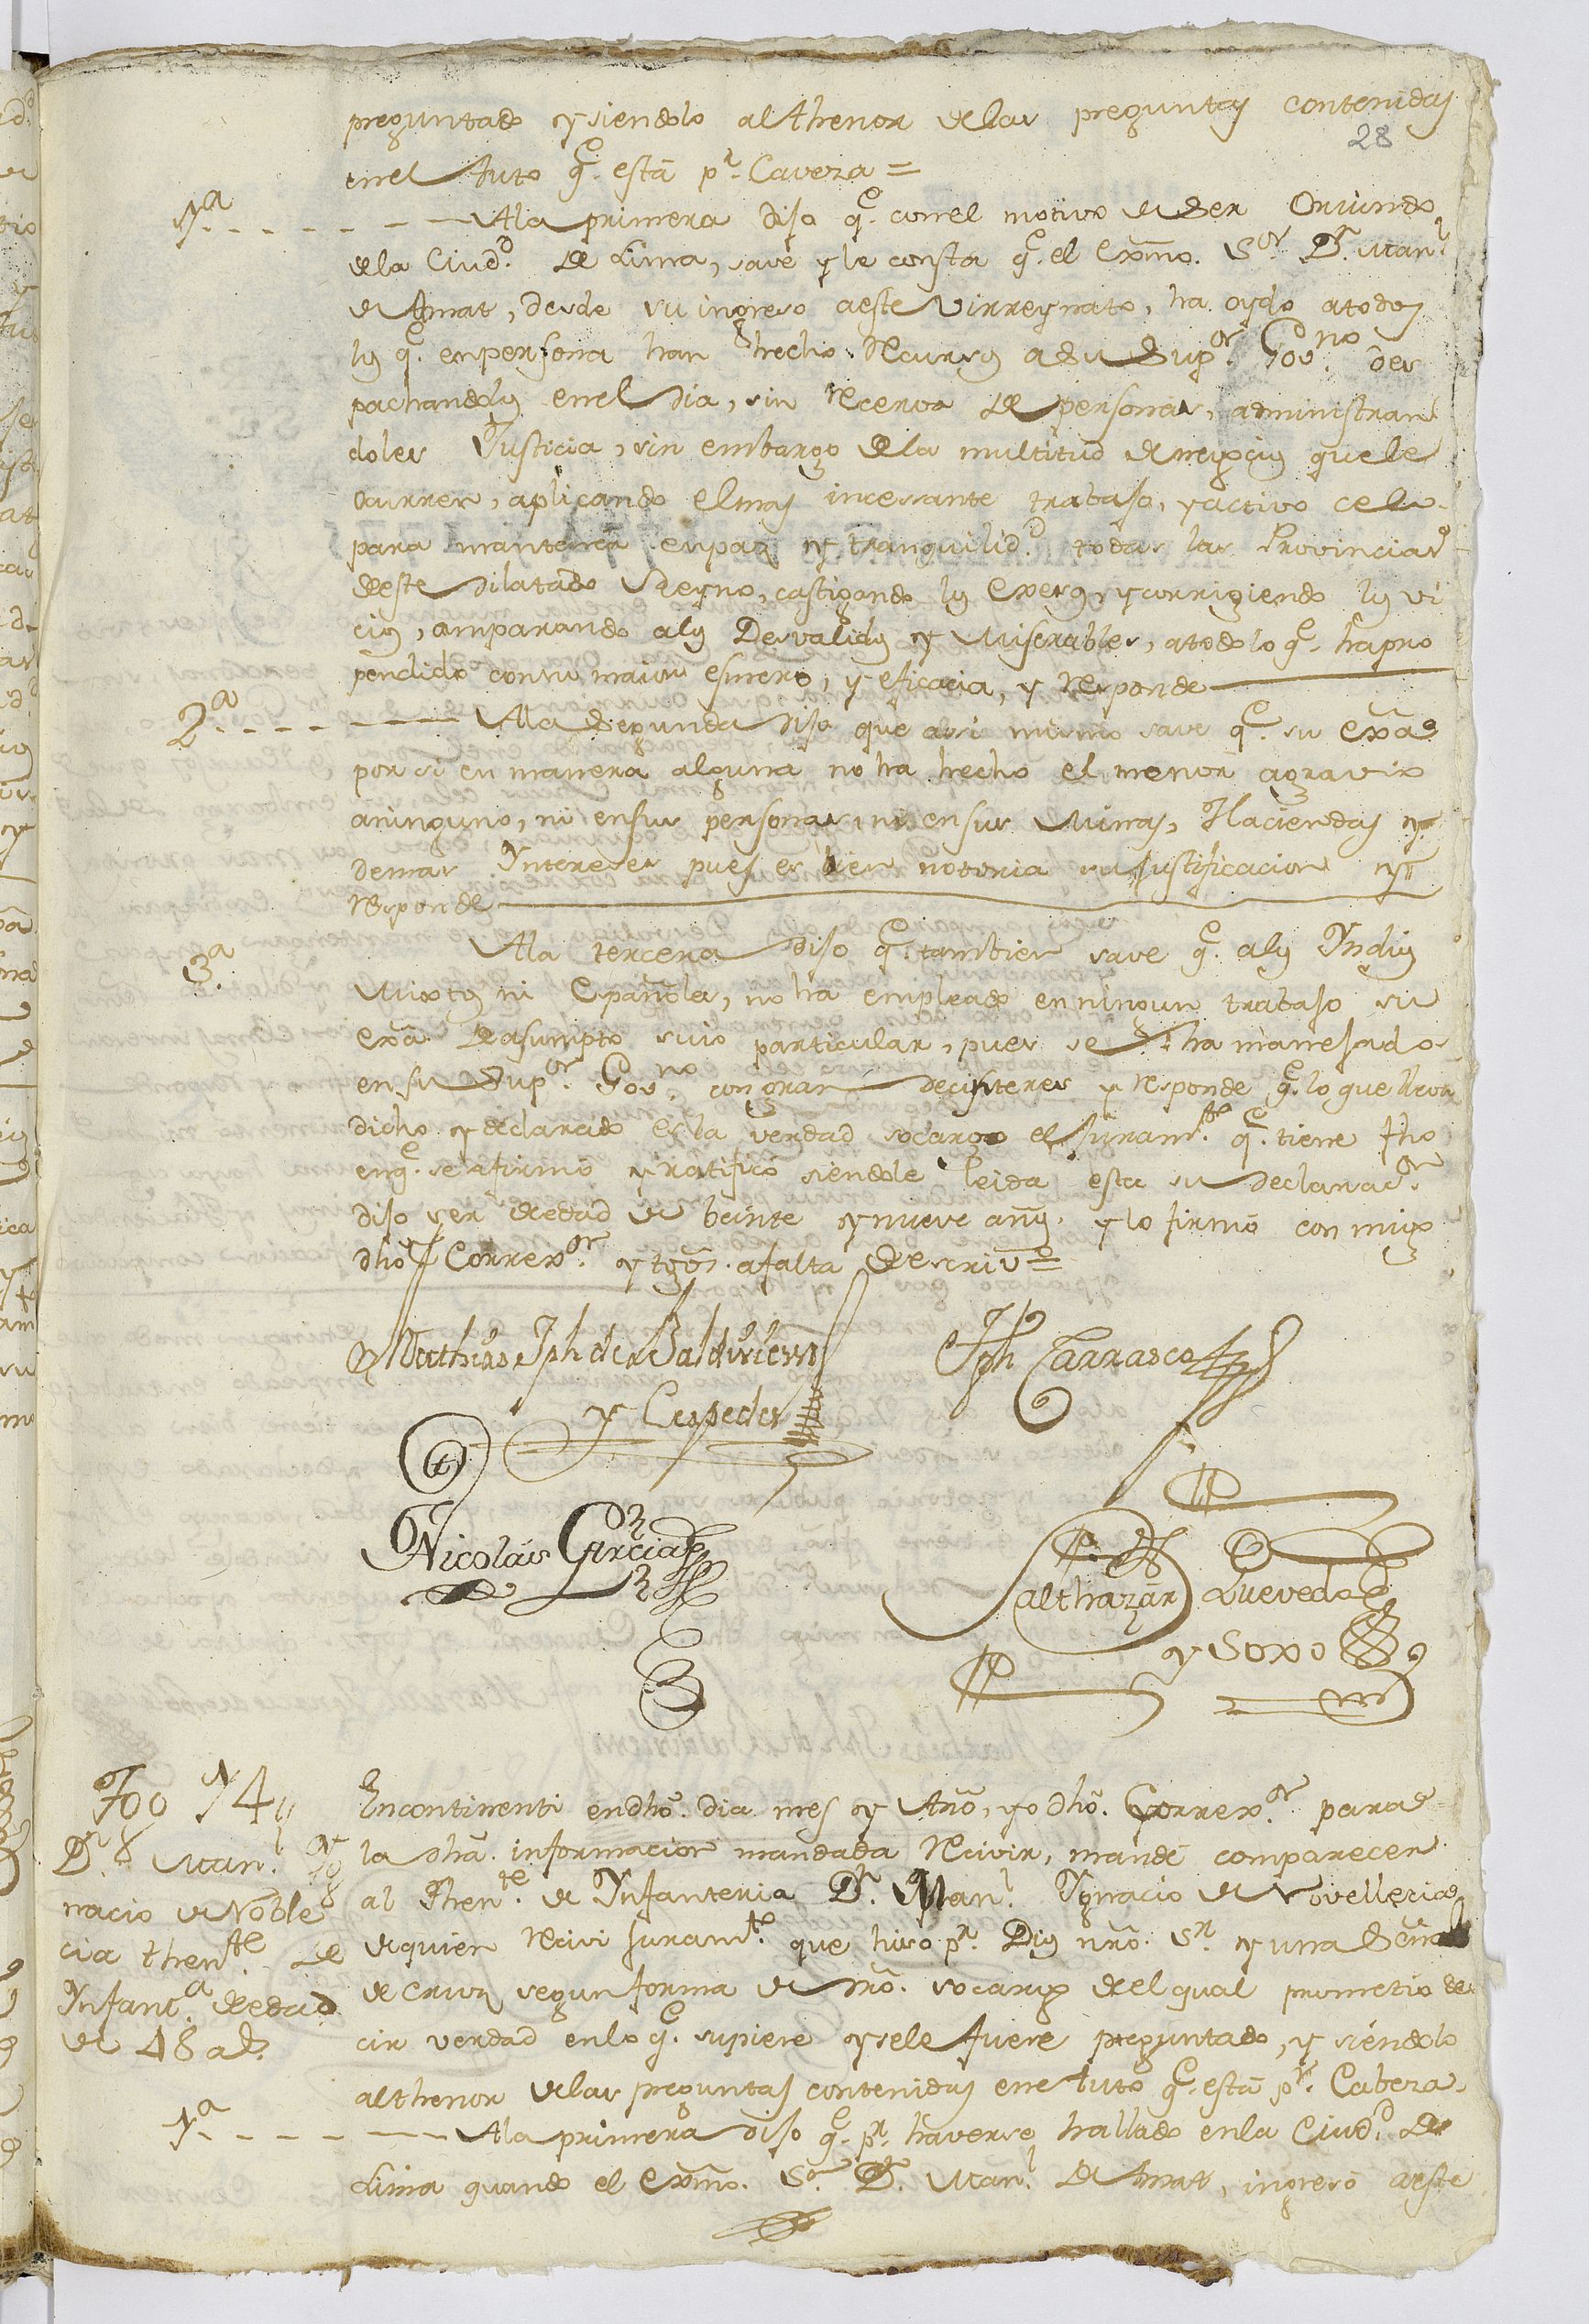 preguntado y siendolo al thenor delas preguntas contenidas
28
en el Auto q.e está p.r Caveza =
1.a
A la primera dijo q.e con el motivo de ser Oriundo
de la Ciud.d de Lima, save y le consta q.e el Exmo. S.or D.n Man.l
de Amat, desde su ingreso a este Virreynato, ha oydo a todos
los q.e en persona han hecho Recursos a su Sup.or Gov.no des
pachandolos en el dia, sin recerva de personas, administran
doles Justicia, sin embargo de la multitud de negocios que le
ocurren, aplicando el mas incessante trabajo, y activo celo
para mantener en paz y tranquilid.d todas las Provincias
de este dilatado Reyno, castigando los Exesos, y corrigiendo los vi
cios, amparando a los Desvalidos y Miserables, a todo lo q.e ha pro
pendido con su maior esmero, y eficacia, y responde
2.a
A la Segunda dijo que asi mismo save q.e su Exa.
por si en manera alguna no ha hecho el menor agravio
a ninguno, ni en sus personas, ni en sus Minas, Haciendas y
demas Intereses pues es bien notoria su justificacion y
responde
3.a
A la tercera dijo q.e tambien save q.e a los Yndios
Mixtos ni Españoles, no ha empleado en ningun trabajo su
Exa. de asumpto suio particular, pues se ha manejado
en su Sup.or Gov.no con gran decinteres y responde q.e lo que lleva
dicho y declarado es la verdad socargo el juram.to q.e tiene fho
en q.e se afirmó y ratificó siendole leida esta su declarac.on
dijo ser de edad de beinte y nueve años, y lo firmó con migo
dho Correx.or y tgos. a falta de escriv.o =
Mathias Jph de Baldivieso
y Cespedes
Jph Carrasco
Nicolás Garcia
Balthazàr Quevedo
y Soxo
Tgo 14
D.n Man.l Yg
nacio de Noble
cia then.te de
Ynfant.a de edad
de 48 a.s
Encontinenti en dho. dia mes y Año, yo dho. Correx.or para
la dha. informacion mandada recivir, mandé comparecer
al Then.te de Ynfanteria D.n Man.l Ygnacio de Novellecia
de quien recivi juram.to que hiso p.r Dios nro. S.r y una Señal
de cruz segun forma de dro. socargo del qual prometio de
cir verdad en lo q.e supiere y se le fuere preguntado, y siéndolo
al thenor de las preguntas contenidas en el Auto q.e está p.r Cabeza
1.a
A la primera dijo q.e p.r haverse hallado en la Ciud.d de
Lima quando el Exmo. S.or D.n Man.l de Amat, ingresó a este